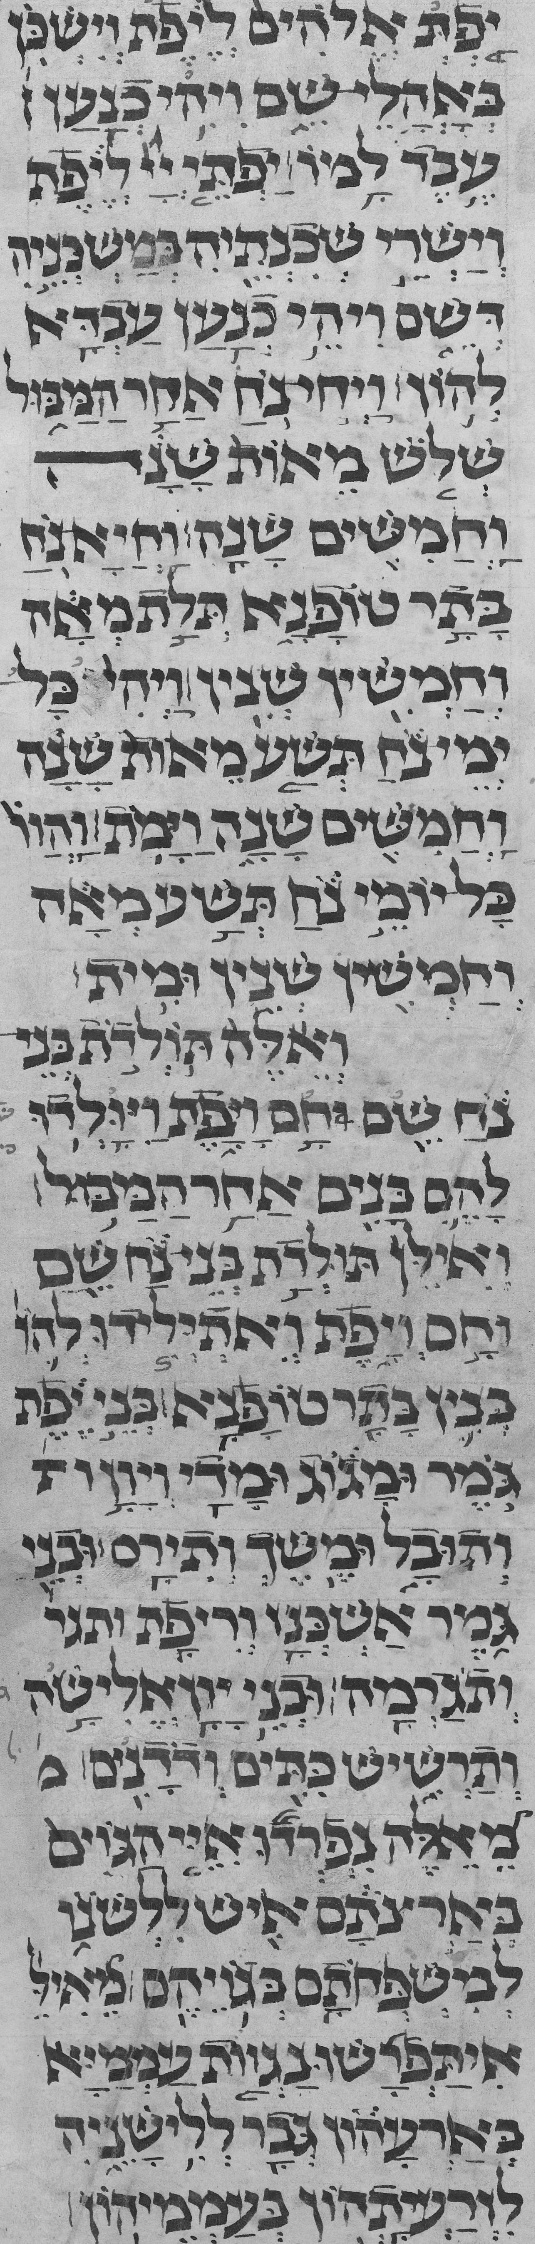 יַפְתְּ אֱלֹהִים לְיֶפֶת וְיִשְׁכֹּן
בְּאָהֳלֵי שֵׁם וִיהִי כְנַעַן
עֶבֶד לָמוֹ יַפְתֵּי יְיָ לְיֶפֶת
וְיַשְׁרֵי שְׁכִנְתֵּיהּ בְּמַשְׁכְּנֵיהּ
דְּשֵׁם וִיהֵי כְנַעַן עַבְדָּא
לְהוֹן וַיְחִי נֹחַ אַחַר הַמַּבּוּל
שְׁלֹשׁ מֵאוֹת שָׁנָה
וַחֲמִשִּׁים שָׁנָה וַחֲיָא נֹחַ
בָּתַר טוֹפָנָא תְּלָת מְאָה
וְחַמְשִׁין שְׁנִין וַיְהִי כָּל
יְמֵי נֹחַ תְּשַׁע מֵאוֹת שָׁנָה
וַחֲמִשִּׁים שָׁנָה וַיָּמֹת וַהֲווֹ
כָּל יוֹמֵי נֹחַ תְּשַׁע מְאָה
וְחַמְשִׁין שְׁנִין וּמִית
וְאֵלֶּה תּוֹלְדֹת בְּנֵי
נֹחַ שֵׁם חָם וָיָפֶת וַיִּוָּלְדוּ
לָהֶם בָּנִים אַחַר הַמַּבּוּל
וְאִילֵּין תּוּלְדָת בְּנֵי נֹחַ שֵׁם
וְחָם וְיֶפֶת וְאִתְיְלִידוּ לְהוֹן
בְּנִין בָּתַר טוֹפָנָא בְּנֵי יֶפֶת
גֹּמֶר וּמָגוֹג וּמָדַי וְיָוָן ות
וְתוּבָל וּמֶשֶׁךְ וְתִירָס וּבְנֵי
גֹּמֶר אַשְׁכְּנַז וְרִיפַת ותגר
וְתֹגַרְמָה וּבְנֵי יָוָן אֱלִישָׁה
וְתַרְשִׁישׁ כִּתִּים וְדֹדָנִים מ
מֵאֵלֶּה נִפְרְדוּ אִיֵּי הַגּוֹיִם
בְּאַרְצֹתָם אִישׁ לִלְשֹׁנוֹ
לְמִשְׁפְּחֹתָם בְּגוֹיֵהֶם מֵאִילֵּין
אִיתְפְּרָשׁוּ נַגְוַת עַמְמַיָּא
בְּאַרְעֲהוֹן גְּבַר לְלִישָׁנֵיהּ
לְזַרְעֲיָתְהוֹן בְּעַמְמֵיהוֹן